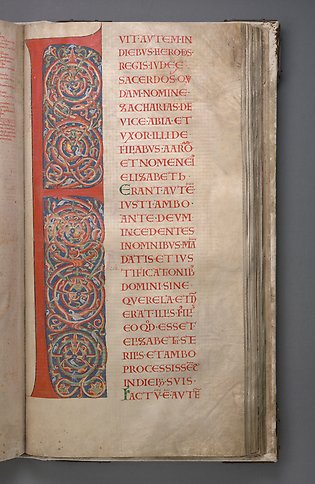 F
VIT·AVTEM·IN
DIEBVS·HERODIS
REGIS·IVDEE·
SACERDOS·QVI
DAM·NOMINE·
ZACHARIAS·DE
VICE·ABIA·ET
VXOR·ILLI·DE
FILIABVS·AARŌ
ET NOMEN EI
ELIZABETH·
ERANT·AVTĒ
IVSTI·AMBO·
ANTE·DEVM·
INCEDENTES
IN OMNIBVS·MĀ
DATIS·ET IVS
TIFICATIONIB;
DOMINI·SINE·
QVERELA·ET Ñ
ERAT·ILLIS·FILI
EO QĐ·ESSET
ELIZABETH·STE
RILIS·ET AMBO
PROCESSISSĒT
IN DIEB;·SVIS·
FACTV̄·Ē·AVTĒ